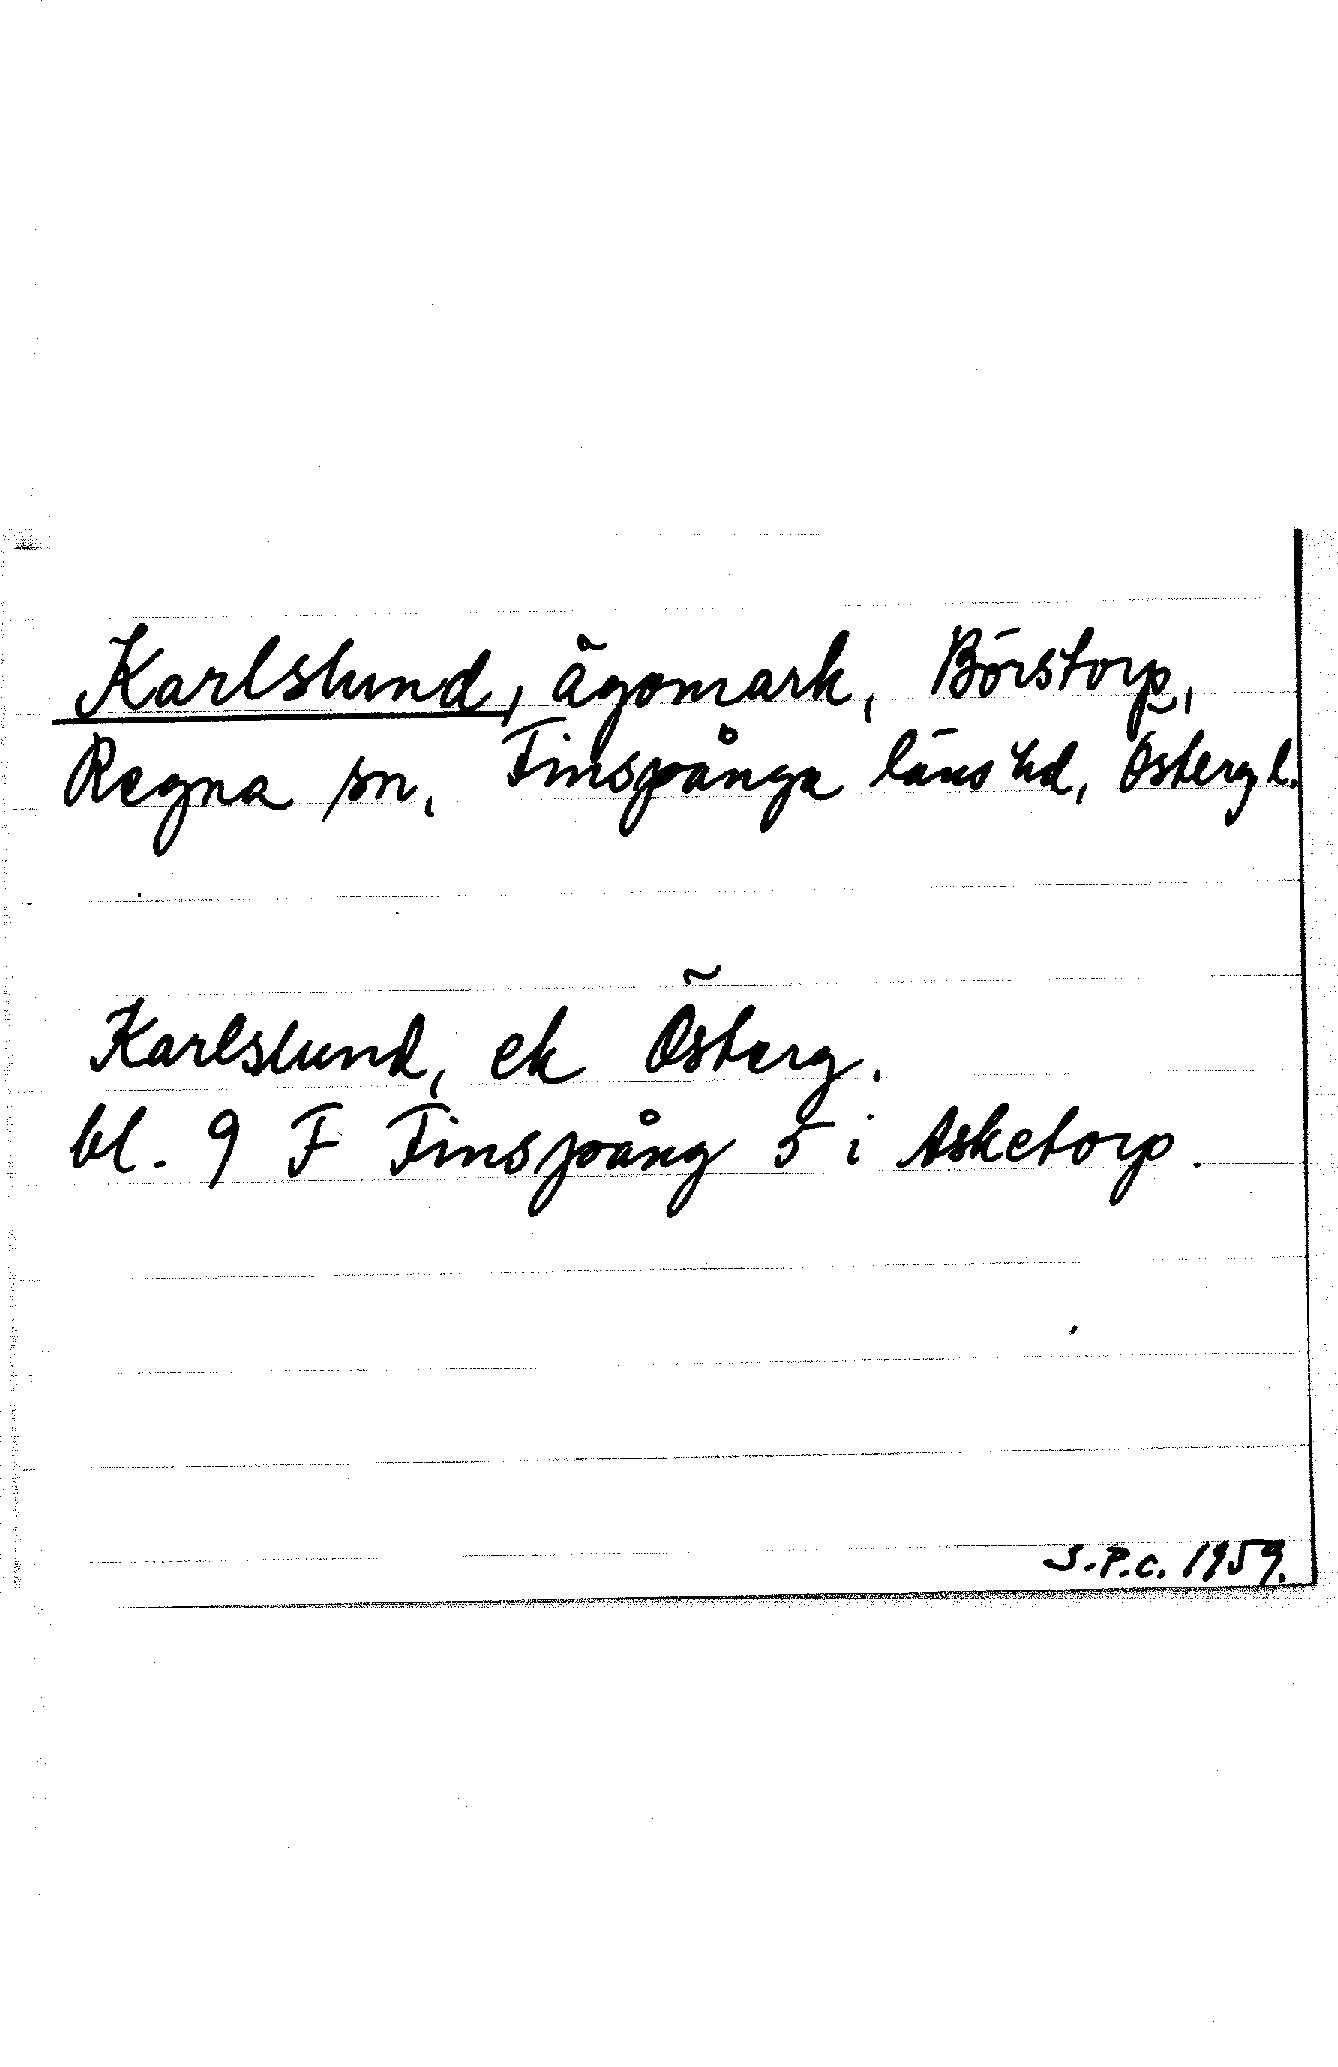 Karlslund, ägomark, Börstorp,
Regna sn, Finspånga läns hd, Östergl.
Karlslund, ek Österg.
bl. 9 F Finspång 5 i Asketorp.
S.P.C. 1959.